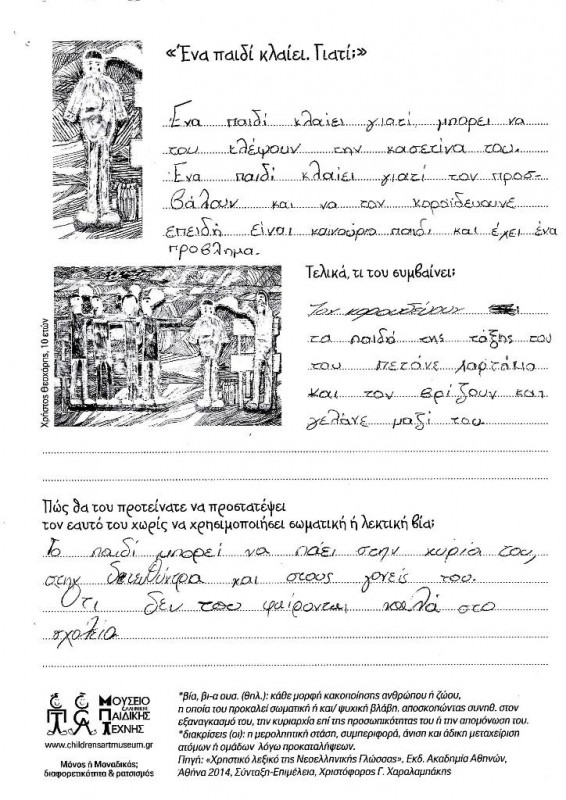 «Ένα παιδί κλαίει. Γιατί;»
Ένα παιδί κλαίει γιατί μπορει να
του κλέψουν την κασετίνα του.
Ένα παιδί κλαίει γιατί τον προσ-
βάλουν και να τον κοροϊδευουνε
επειδή είναι καινούριο παιδι και έχει ένα
προβλημα.
Χρήστος Θεοχάρης, 10 ετών
Τελικά, τι του συμβαίνει;
Τον κοροιδεύουν
τα παιδιά της τάξης του
του πετάνε χαρτάκια
και τον βρίζουν και
γελάνε μαζί του
Πώς θα του προτείνατε να προστατέψει
τον εαυτό του χωρίς να χρησιμοποιήσει σωματική ή λεκτική βία;
Το παιδί μπορεί να πάει στην κυρία του,
στην διευθύντρα και στους γονείς του.
Ότι δεν του φαίρονται καλά στο
σχολείο
ΜΟΥΣΕΙΟ
ΕΛΛΗΝΙΚΗΣ
ΠΑΙΔΙΚΗΣ
ΤΕΧΝΗΣ
www.childrensartmuseum.gr
Μόνος ή Μοναδικός;
διαφορετικότητα & ρατσισμός
*βία, βι-α ουσ. (θηλ.): κάθε μορφή κακοποίησης ανθρώπου ή ζώου,
η οποία του προκαλεί σωματική ή και/ ψυχική βλάβη, αποσκοπώντας συνηθ. στον
εξαναγκασμό του, την κυριαρχία επί της προσωπικότητας του ή την απομόνωση του.
*διακρίσεις (οι): η μεροληπτική στάση, συμπεριφορά, άνιση και άδικη μεταχείριση
ατόμων ή ομάδων λόγω προκαταλήψεων.
Πηγή: «Χρηστικό λεξικό της Νεοελληνικής Γλώσσας», Εκδ. Ακαδημία Αθηνών,
Αθήνα 2014, Σύνταξη-Επιμέλεια, Χριστόφορος Γ. Χαραλαμπάκης